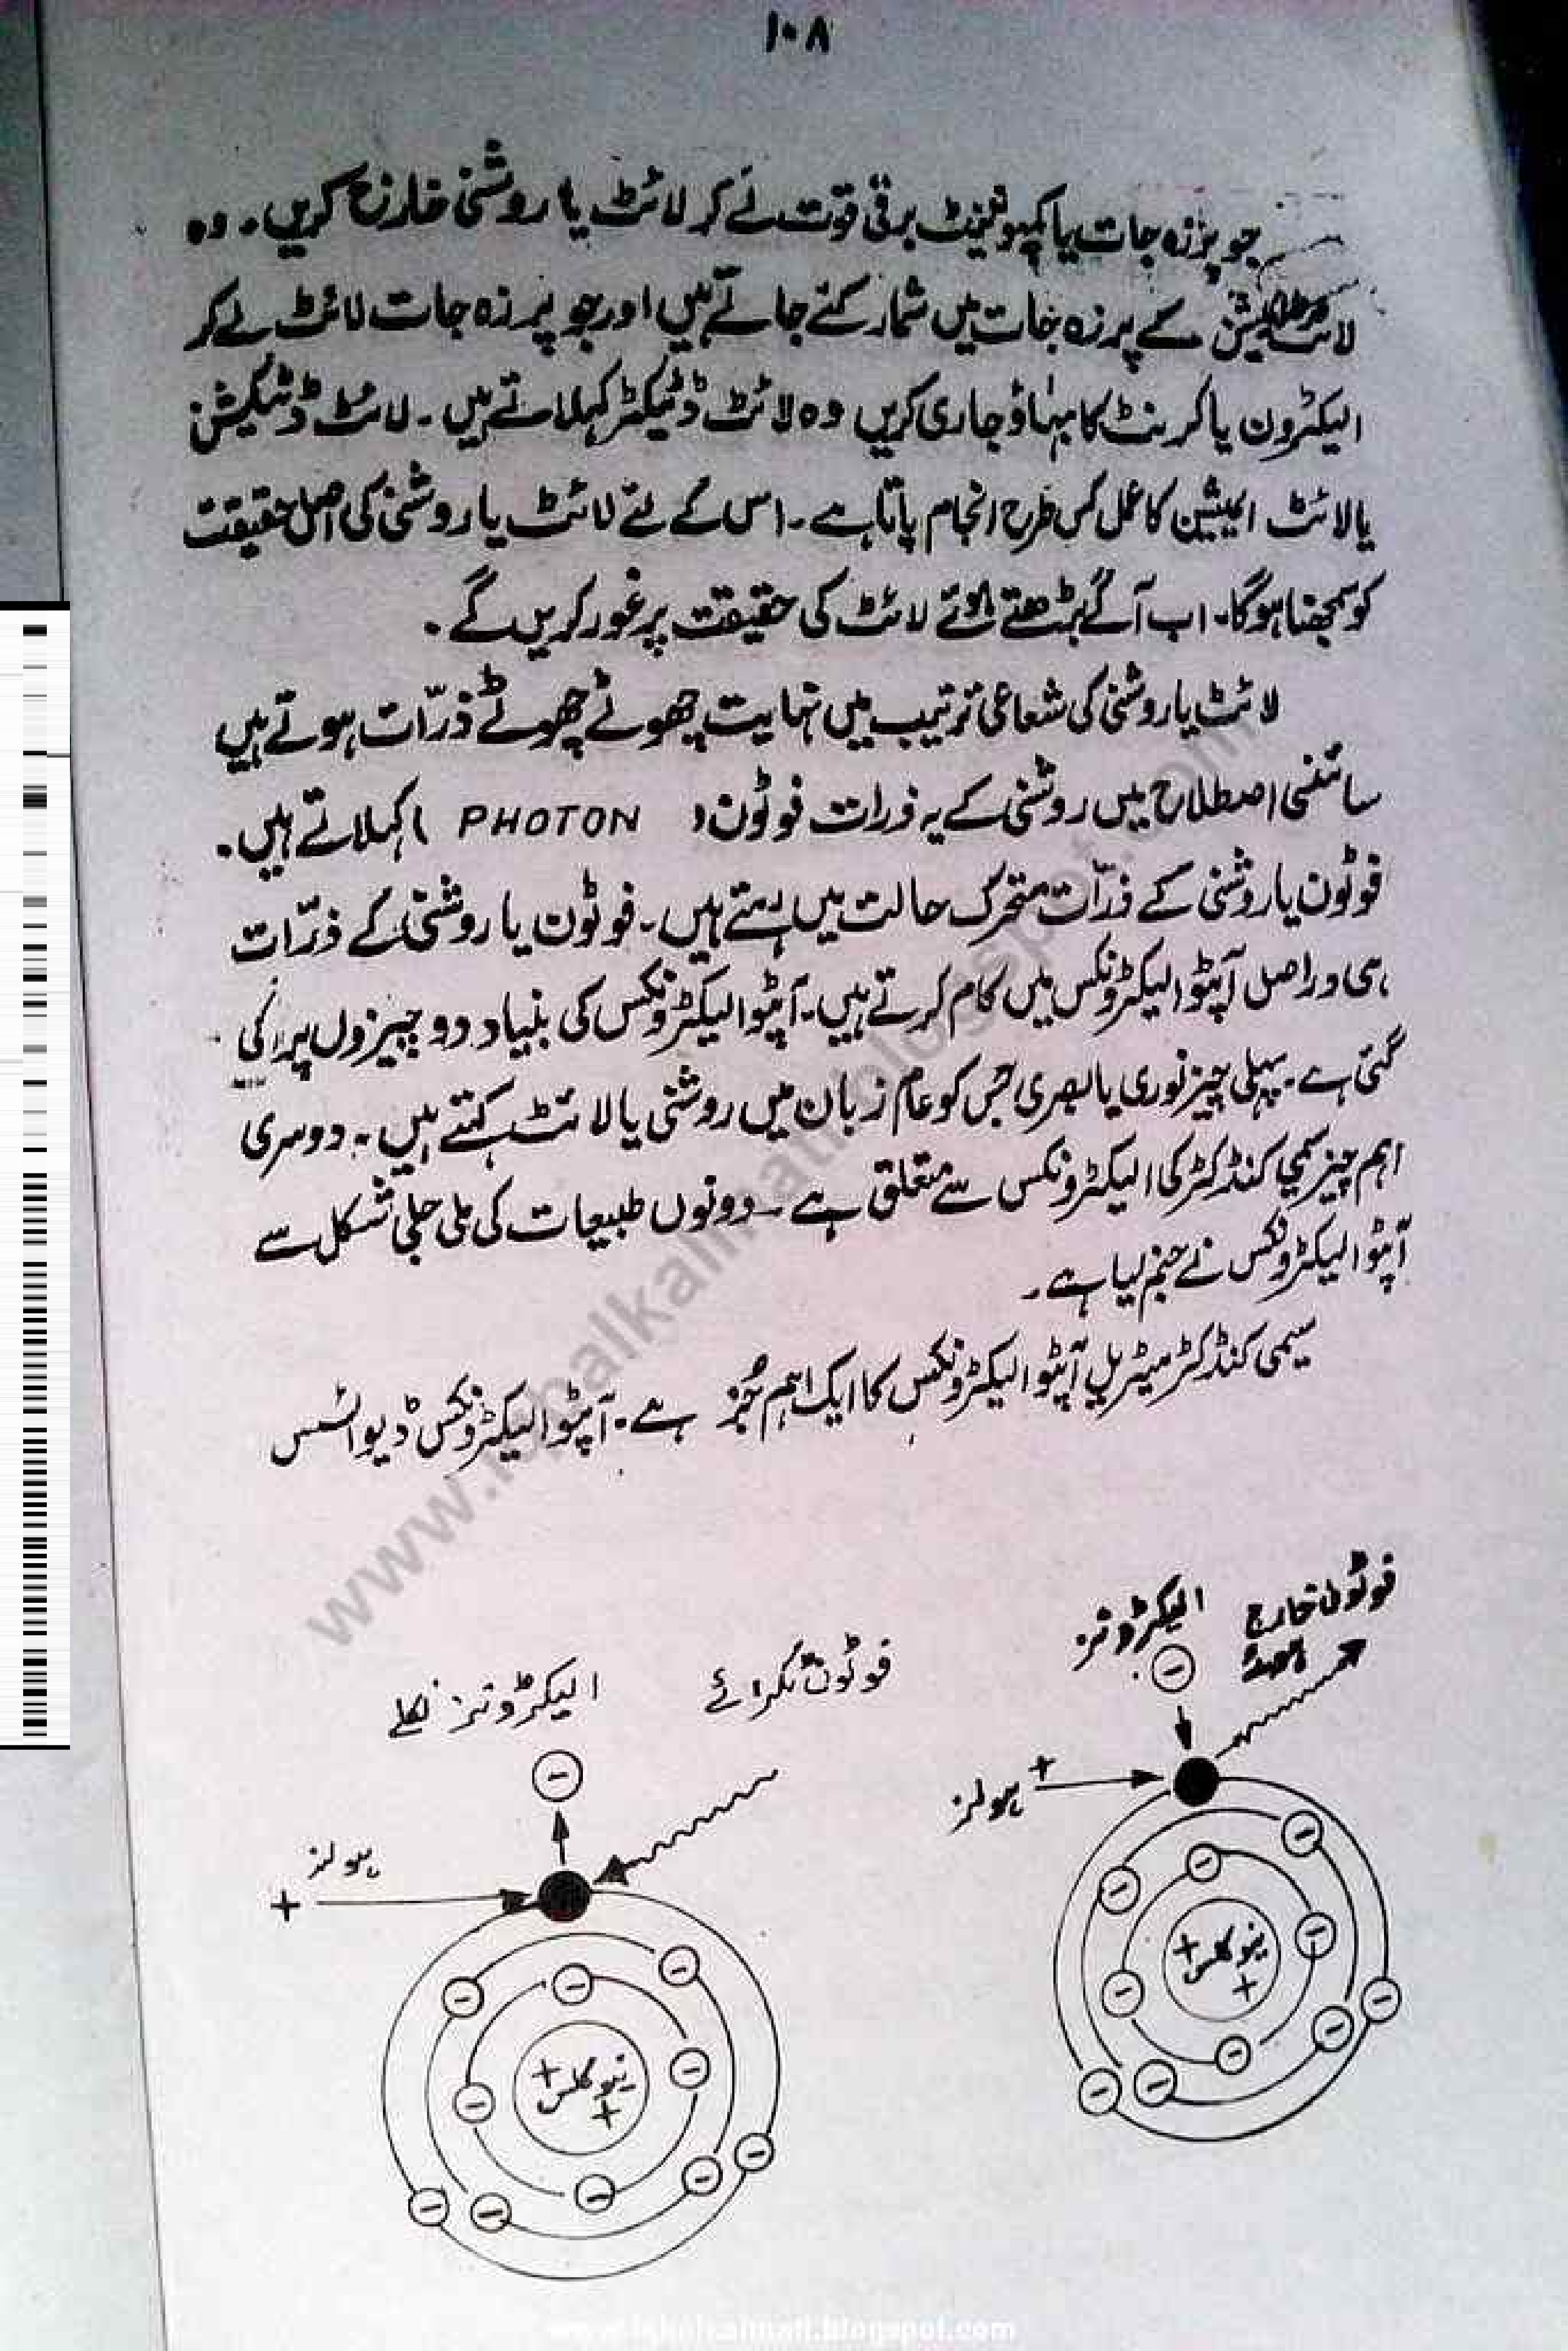 ۱۰۸
جو پرزہ جات یا کمپونینٹ برقی قوت لے کر لائٹ یا روشنی خارج کریں۔ وہ
لائٹ کے پرزہ جات میں شمار کئے جاتے ہیں اور جو پرزہ جات لائٹ لے کر
الیکٹرون یا کرنٹ کا بہاؤ جاری کریں وہ لائٹ ڈٹیکٹر کہلاتے ہیں۔ لائٹ ڈٹیکشن
یا لائٹ ایمیشن کا عمل کس طرح انجام پاتا ہے۔ اس کے لئے لائٹ یا روشنی کی اصل حقیقت
کو سمجھنا ہوگا۔ اب آگے بڑھتے ہوئے لائٹ کی حقیقت پر غور کریں گے۔
لائٹ یا روشنی کی شعاعی ترتیب میں نہایت چھوٹے چھوٹے ذرّات ہوتے ہیں
سائنسی اصطلاح میں روشنی کے یہ ذرات فوٹون ( PHOTON ) کہلاتے ہیں۔
فوٹون یا روشنی کے ذرّات متحرک حالت میں رہتے ہیں۔ فوٹون یا روشنی کے ذرّات
ہی دراصل آپٹو الیکٹرونکس میں کام کرتے ہیں۔ آپٹو الیکٹرونکس کی بنیاد دو چیزوں پر رکھی
گئی ہے۔ پہلی چیز نوری یا بصری جس کو عام زبان میں روشنی یا لائٹ کہتے ہیں۔ دوسری
اہم چیز سیمی کنڈکٹر کی الیکٹرونکس سے متعلق ہے۔ دونوں طبیعات کی ملی جلی شکل سے
آپٹو الیکٹرونکس نے جنم لیا ہے۔
سیمی کنڈکٹر میٹریل آپٹو الیکٹرونکس کا ایک اہم جُز ہے۔ آپٹو الیکٹرونکس ڈیوائسس
فوٹون خارج ہوئے
الیکٹرونز
ہولز +
نیوکلس
+
+
فوٹون ٹکرائے
الیکٹرونز نکلے
ہولز
+
نیوکلس
+
+
www.iqbalkalmati.blogspot.com
www.iqbalkalmati.blogspot.com